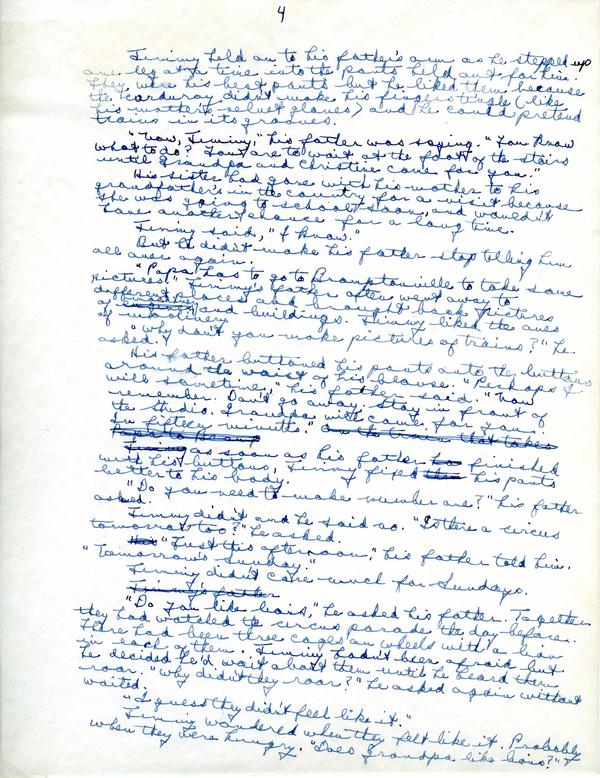 4
Jimmy held on to his father's arm as he stepped up
one leg at a time into the pants held out for him.
They were his best pants but he liked them because
the corduroy didn't make his fingers tingle (like
his mother's velvet gloves) and he could pretend
trains in its grooves.
"Now, Jimmy," his father was saying. "You know
what to do? You are to wait at the foot of the stairs
until Grandpa and Christine come for you."
His sister had gone with his mother to his
grandfather's in the country for a visit because
she was going to school soon, and wouldn't
have another chance for a long time.
Jimmy said, "I know."
But it didn't make his father stop telling him
all over again.
"Papa has to go to Bramptonville to take some
pictures." Jimmy's father often went away to
different places and brought back pictures
of and buildings. Jimmy liked the ones
of machinery.
"Why don't you make pictures of trains?" he
asked.
His father buttoned his pants onto the buttons
around the waist of his blouse. "Perhaps I
will sometime," his father said. "Now
remember. Don't go away. Stay in front of
the studio. Grandpa will come for you.
In fifteen minutes." On the train that takes
Papa to Bramp
Jimmy as soon as his father had finished
with his buttons, Jimmy fixed his pants
better to his body.
"Do you need to make number one?" his father
asked.
Jimmy didn't and he said so. "Is there a circus
tomorrow too?" he asked.
"Just this afternoon," his father told him.
"Tomorrow's Sunday."
Jimmy didn't care much for Sundays.
Jimmy's father
"Do you like lions," he asked his father. Together
they had watched the circus parade the day before.
There had been three cages on wheels with a lion
in each of them. Jimmy hadn't been afraid but
he decided he'd wait about them until he heard them
roar. "Why didn't they roar?" he asked again without
waiting.
"I guess they didn't feel like it."
Jimmy wondered when they felt like it. Probably
when they were hungry. "Does grandpa like lions?"